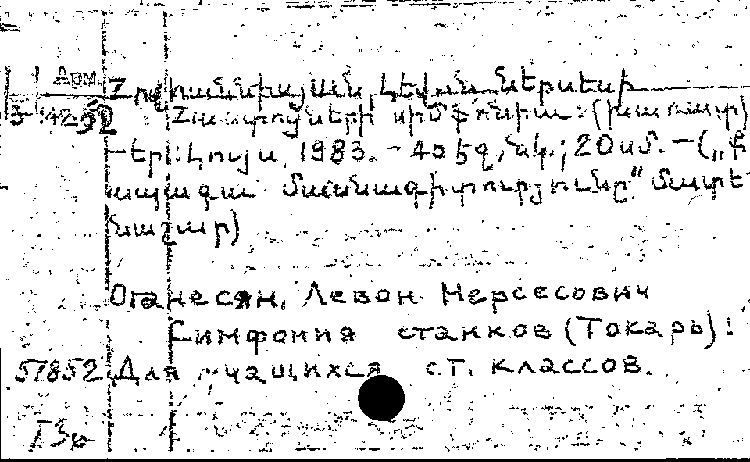 Арм
Հովհաննիսյան, Լևոն Ներսեսի
3-4252 Հաստոցների սիմֆոնիա: (խառատ)
-Եր.: Լույս, 1983. - 40 էջ, նկ.; 20 սմ. - („Քո
ապագա մասնագիտությունը" մատե-
նաշար)
Оганесян, Левон Нерсесович
Симфония станков (Токарь):
51852 Для учащихся ст. классов.